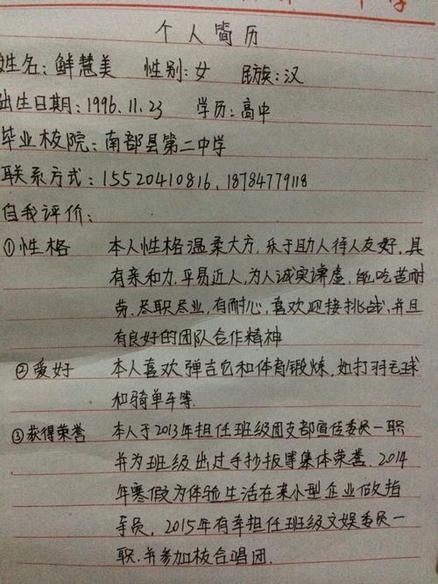 个人简历
姓名：鲜慧美 性别：女 民族：汉
出生日期：1996.11.23 学历：高中
毕业校院：南部县第二中学
联系方式：15520410816、18784779118
自我评价：
①性格 本人性格温柔大方，乐于助人待人友好，具
有亲和力，平易近人，为人诚实谦虚，能吃苦耐
劳、尽职尽业，有耐心，喜欢迎接挑战，并且
有良好的团队合作精神
②爱好 本人喜欢弹吉它和体育锻炼，如打羽毛球
和骑单车等
③获得荣誉 本人于2013年担任班级团支部宣传委员一职
并为班级出过手抄报等集体荣誉，2014
年寒假为体验生活在某小型企业做指
导员，2015年有幸担任班级文娱委员一
职，并参加校合唱团.